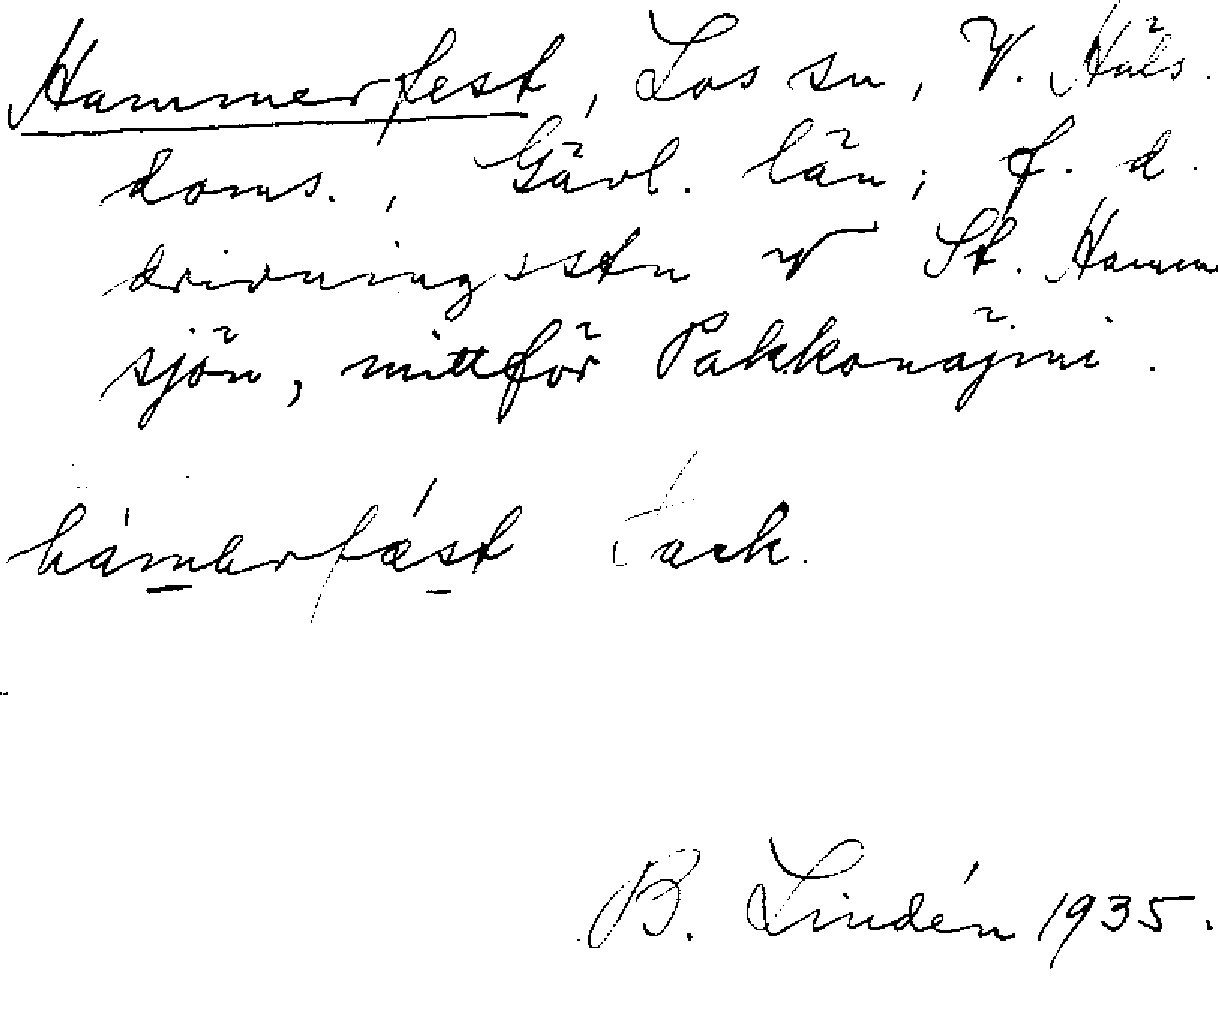 Hammerfest, Los sn, V. Häls.
doms., Gävl. län; f. d.
drivningsstn v St. Hamm
sjön, mittför Pakkonäjmi.
hámərfæst Tack.
B. Lindén 1935.